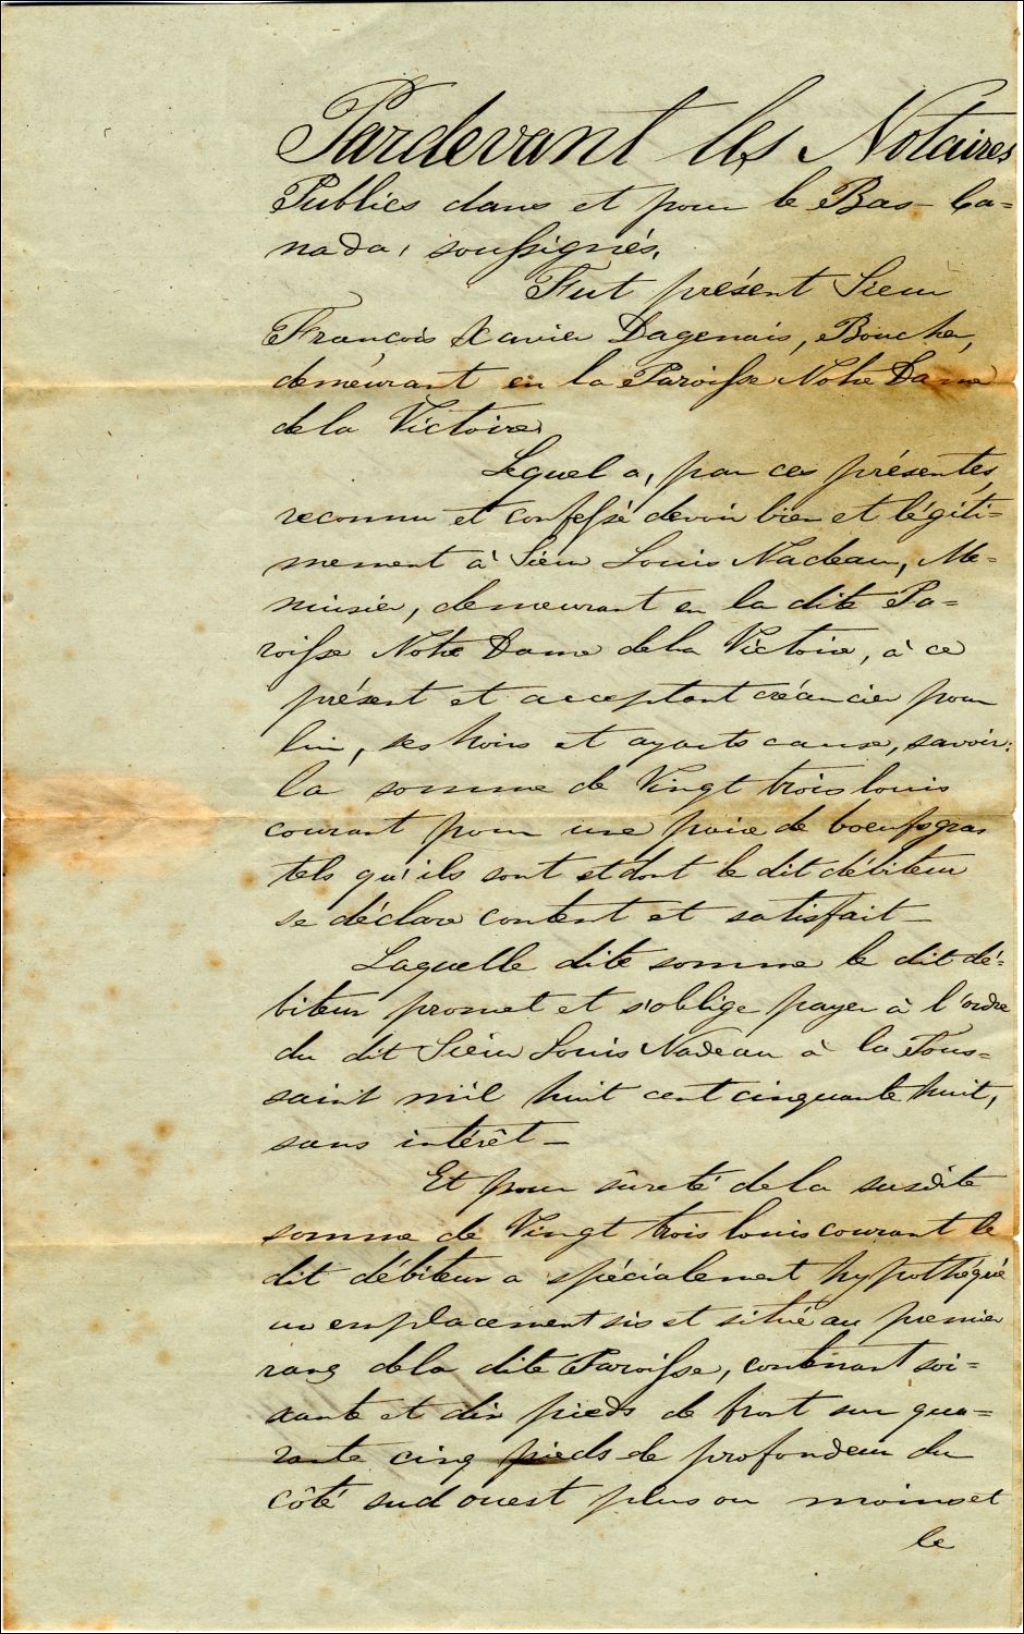 Pardevant les Notaires
Publics dans et pour le Bas-Ca=
nada, soussignés,
Fut présent Sieur
François Xavier Dagenais, Boucher,
demeurant en la Paroisse Notre Dame
dela Victoire
Lequel a, par ces présentes,
reconnu et confessé devoir bien et légiti=
mement à Sieur Louis Nadeau, Me=
nuisier, demeurant en la dite Pa=
roisse Notre Dame dela Victoire, à ce
présent et acceptant créancier pour
lui, ses hoirs et ayants cause, savoir:
la somme de Vingt trois louis
courant pour une paire de boeufs gras
tels qu'ils sont et dont le dit débiteur
se déclare content et satisfait—
Laquelle dite somme le dit dé=
biteur promet et s'oblige payer à l'ordre
du dit Sieur Louis Nadeau à la Tous=
saint mil huit cent cinquante huit,
sans intérêt—
Et pour sûreté dela susdite
somme de Vingt trois louis courant le
dit débiteur a spécialement hypothéqué
un emplacement sis et situé au premier
rang dela dite Paroisse, contenant soi=
xante et dix pieds de front sur qua=
rante cinq pieds de profondeur du
côté sud ouest plus ou moins et
le